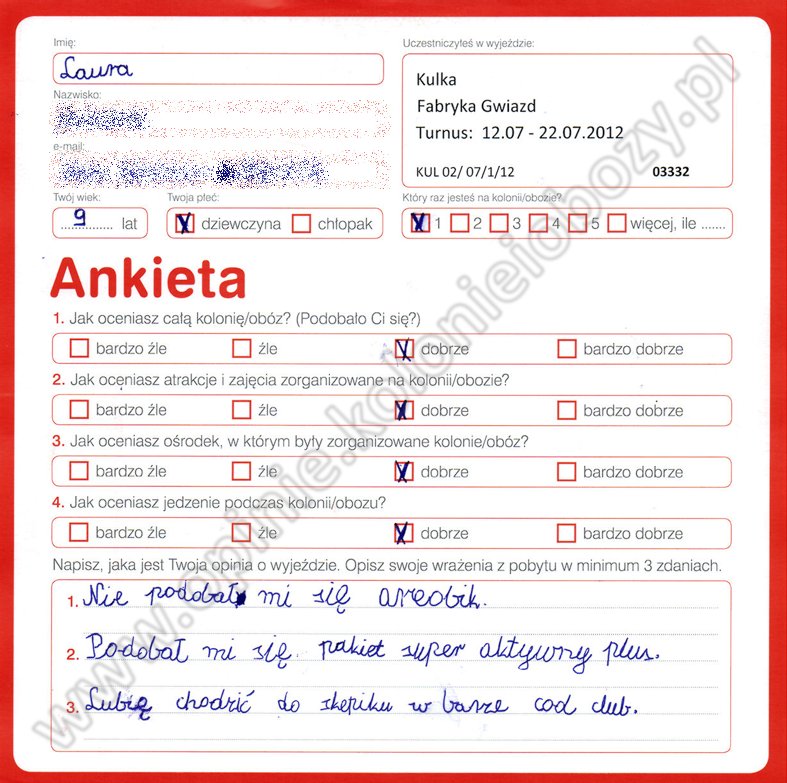 Imię:
Laura
Uczestniczyłeś w wyjeździe:
Kulka
Fabryka Gwiazd
Turnus: 12.07 - 22.07.2012
KUL 02/ 07/1/12 03332
Nazwisko:
e-mail:
Twój wiek: Twoja płeć: Który raz jesteś na kolonii/obozie?
9 lat dziewczyna chłopak 1 2 3 4 5 więcej, ile .......
Ankieta
1. Jak oceniasz całą kolonię/obóz? (Podobało Ci się?)
bardzo źle źle dobrze bardzo dobrze
2. Jak oceniasz atrakcje i zajęcia zorganizowane na kolonii/obozie?
bardzo źle źle dobrze bardzo dobrze
3. Jak oceniasz ośrodek, w którym były zorganizowane kolonie/obóz?
bardzo źle źle dobrze bardzo dobrze
4. Jak oceniasz jedzenie podczas kolonii/obozu?
bardzo źle źle dobrze bardzo dobrze
Napisz, jaka jest Twoja opinia o wyjeździe. Opisz swoje wrażenia z pobytu w minimum 3 zdaniach.
1. Nie podobał mi się areobik.
2. Podobał mi się pakiet super aktywny plus.
3. Lubię chodzić do skepiku w barze cod club.
www.opinie.kolonieiobozy.pl